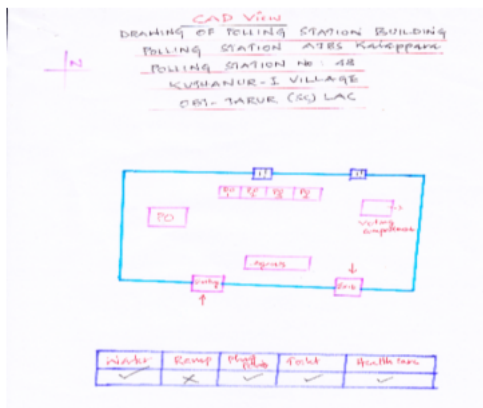 CAD View
DRAWING OF POLLING STATION BUILDING
POLLING STATION AJBS Kalappara
POLLING STATION No: 48
KUTHANUR-I VILLAGE
061- TARUR (SC) LAC
N
PO
Voting
Compartment
Agents
Entry
Exit
Water Ramp Plug Point Toilet Health care
✓ ✗ ✓ ✓ ✓